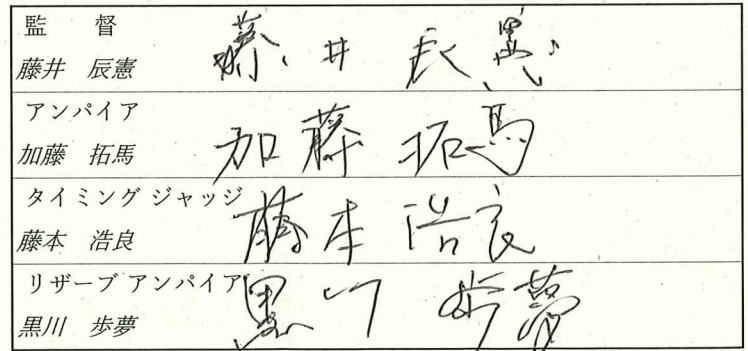 監 督
藤井 辰憲 藤井 辰憲
アンパイア
加藤 拓馬 加藤 拓馬
タイミング ジャッジ
藤本 浩良 藤本 浩良
リザーブ アンパイア
黒川 歩夢 黒川 歩夢